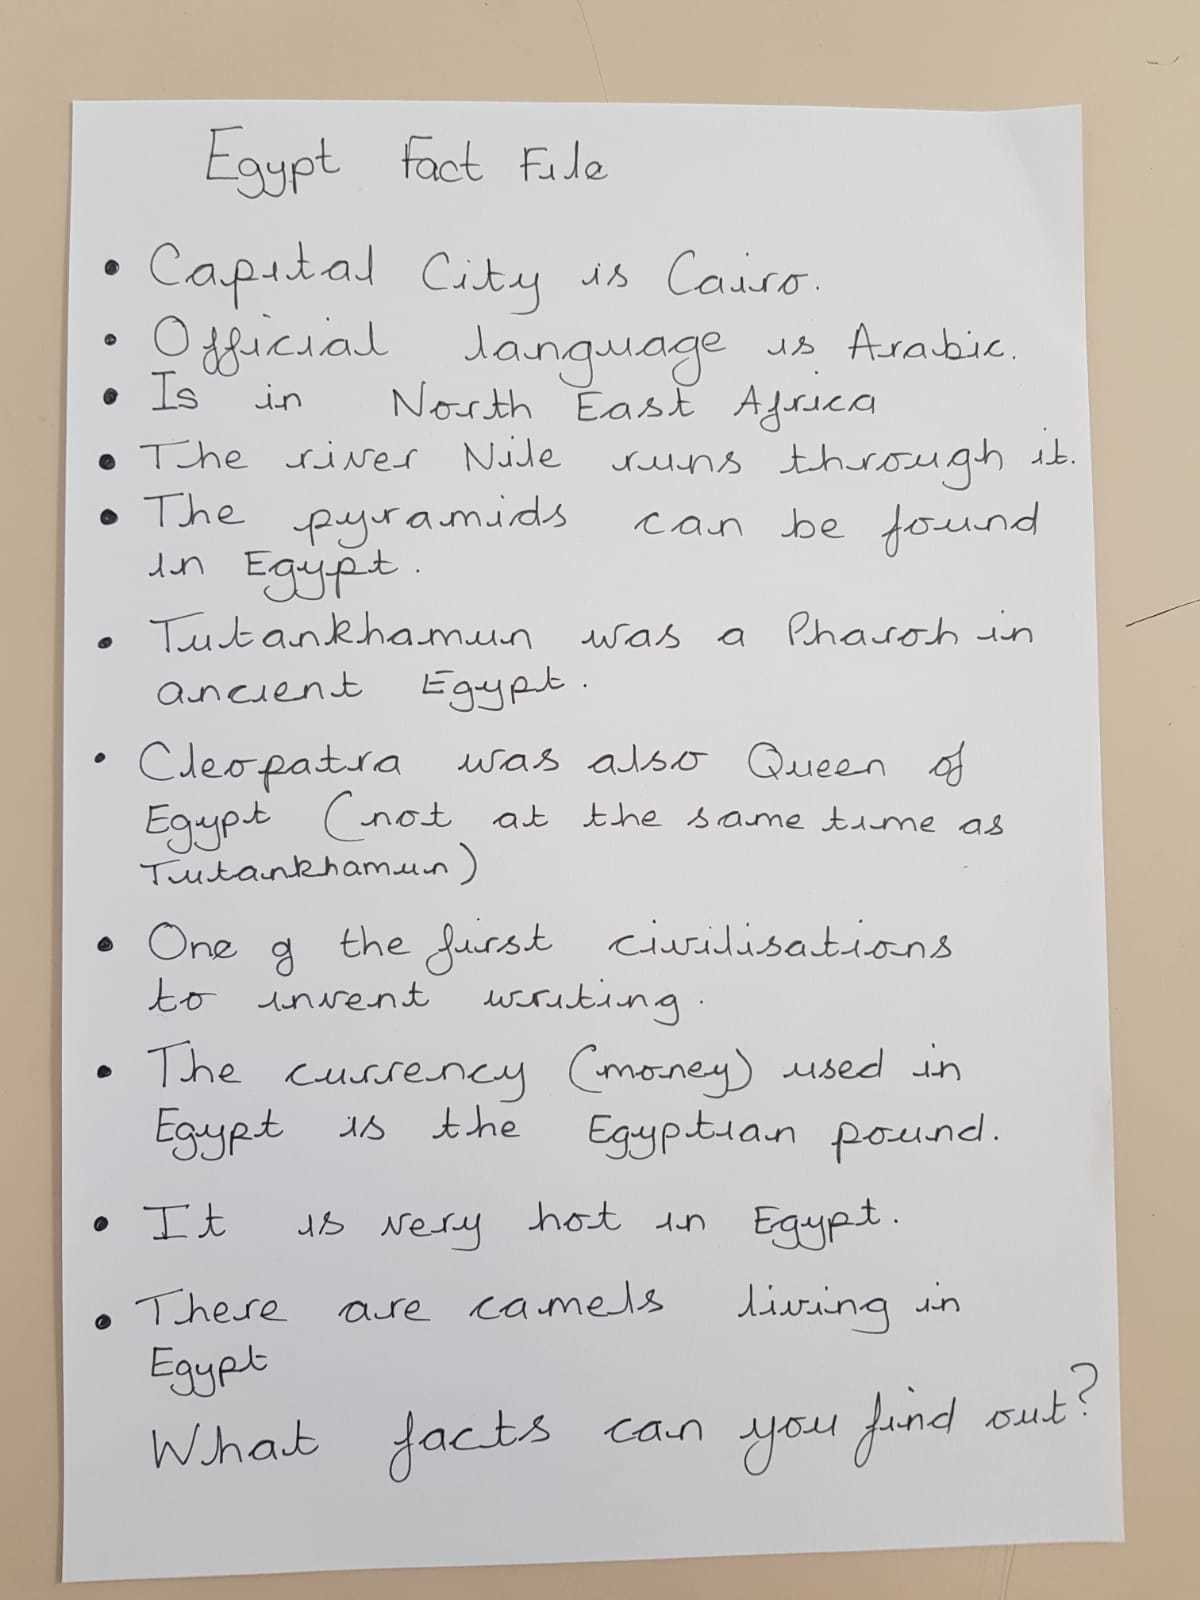 Egypt Fact File
• Capital City is Cairo.
• Official language is Arabic.
• Is in North East Africa
• The river Nile runs through it.
• The pyramids can be found
in Egypt.
• Tutankhamun was a Pharoh in
ancient Egypt.
• Cleopatra was also Queen of
Egypt (not at the same time as
Tutankhamun)
• One of the first civilisations
to invent writing.
• The currency (money) used in
Egypt is the Egyptian pound.
• It is very hot in Egypt.
• There are camels living in
Egypt
What facts can you find out?